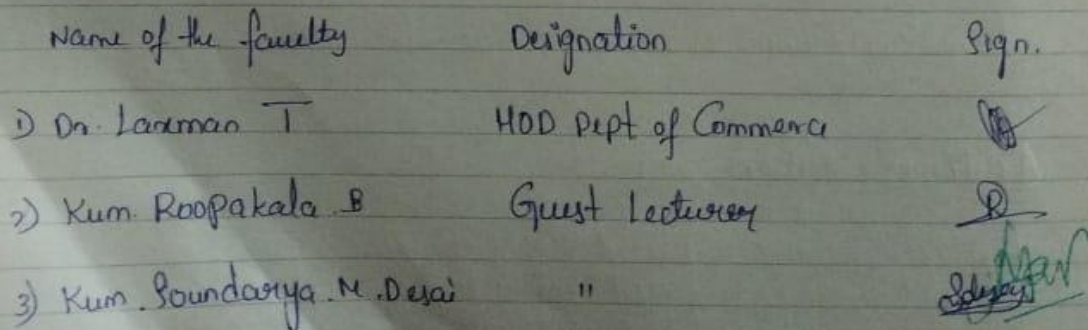 Name of the faculty Designation Sign.
1) Dr. Laxman T HOD Dept of Commerce
2) Kum. Roopakala B Guest Lecturer
3) Kum. Soundarya. M. Desai "